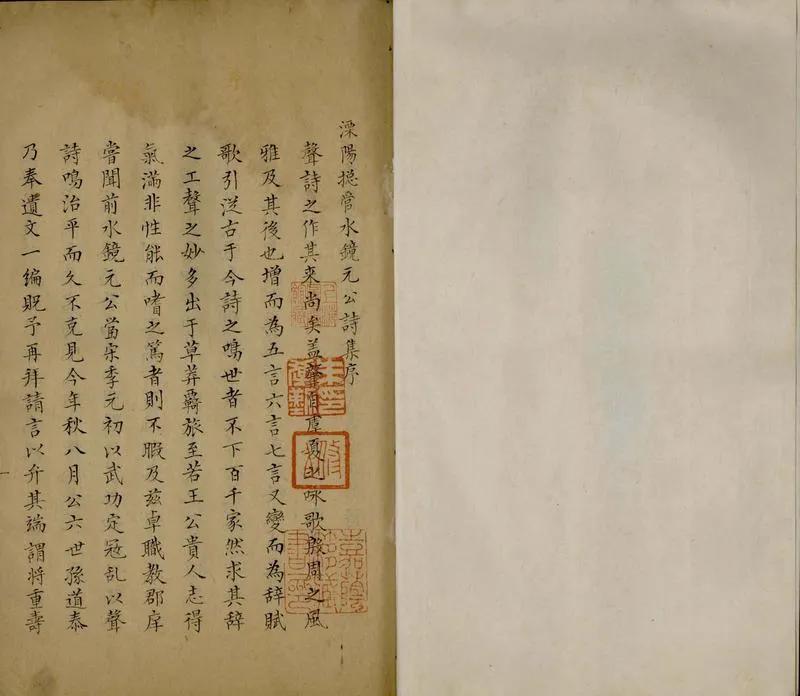 溧陽捴管水鏡元公詩集序
聲詩之作其來尚矣盖肇自虞夏之咏歌殷周之風
雅及其後也增而為五言六言七言又變而為辞賦
歌引泛古于今詩之鳴世者不下百千家然求其辞
之工聲之妙多出于草莽羇旅至若王公貴人志得
氣滿非性能而嗜之篤者則不暇及兹卓職教郡庠
嘗聞前水鏡元公當宋季元初以武功定冦乱以聲
詩鳴治平而久不克見今年秋八月公六世孫道泰
乃奉遺文一编貺予再拜請言以弁其端謂将重壽